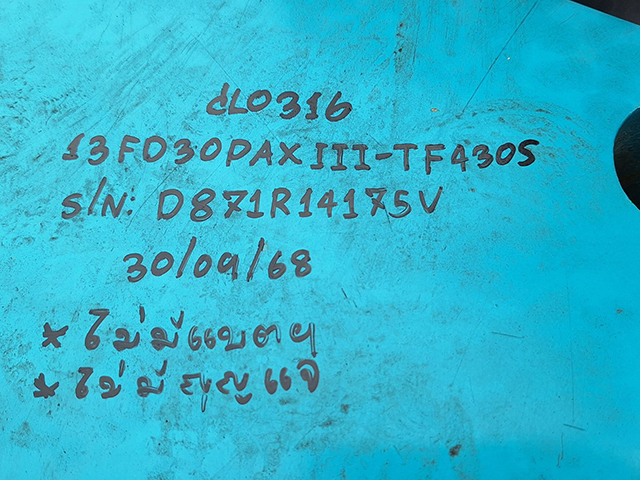 dL0316
13FD30PAXIII-TF430S
S/N: D871R14175V
30/09/68
* ไม่มีแบตฯ
* ไม่มีกุญแจ